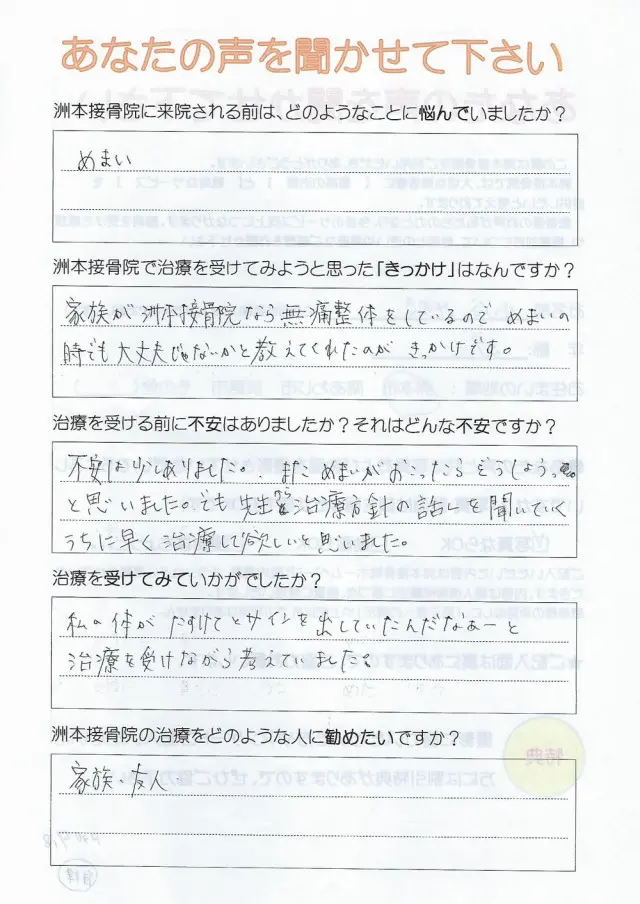 あなたの声を聞かせて下さい
洲本接骨院に来院される前は、どのようなことに悩んでいましたか？
めまい
洲本接骨院で治療を受けてみようと思った「きっかけ」はなんですか？
家族が洲本接骨院なら無痛整体をしているのでめまいの
時でも大丈夫じゃないかと教えてくれたのがきっかけです。
治療を受ける前に不安はありましたか？それはどんな不安ですか？
不安は少しありました。またためまいがおこったらどうしよう。
と思いました。でも先生から治療方針の話しを聞いていく
うちに早く治療して欲しいと思いました。
治療を受けてみていかがでしたか？
私の体がたすけてとサインを出していたんだなぁーと
治療を受けながら考えていました。
洲本接骨院の治療をどのような人に勧めたいですか？
家族・友人
特典